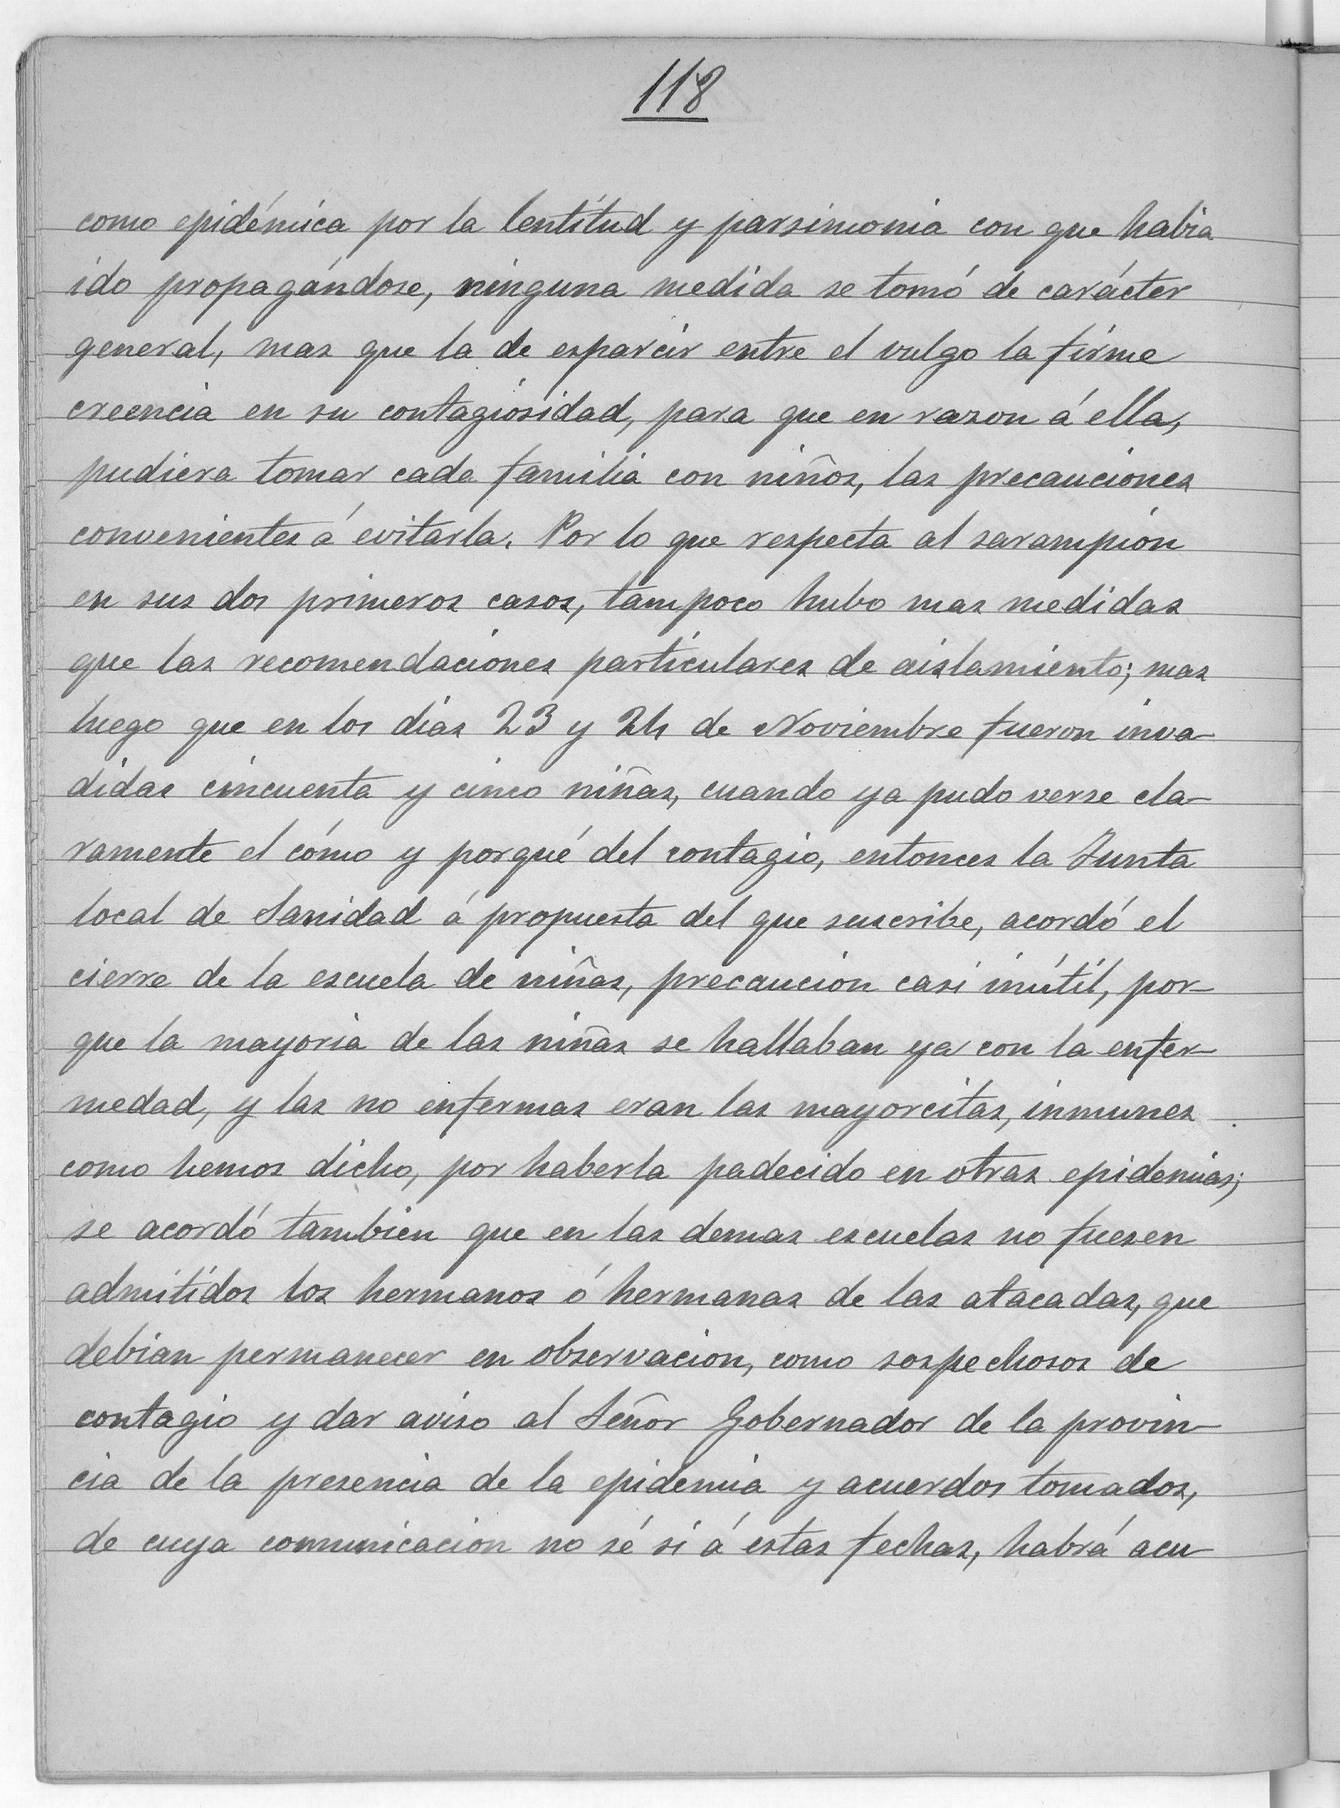 118
como epidémica por la lentitud y parsimonia con que habia
ido propagándose, ninguna medida se tomó de carácter
general, mas que la de esparcir entre el vulgo la firme
creencia en su contagiosidad, para que en razon á ella,
pudiera tomar cada familia con niños, las precauciones
convenientes á evitarla. Por lo que respecta al sarampion
en sus dos primeros casos, tampoco hubo mas medidas
que las recomendaciones particulares de aislamiento; mas
luego que en los dias 23 y 24 de Noviembre fueron inva-
didas cincuenta y cinco niñas, cuando ya pudo verse cla-
ramente el cómo y porqué del contagio, entonces la Junta
local de Sanidad á propuesta del que suscribe, acordó el
cierre de la escuela de niñas, precaucion casi inútil, por-
que la mayoria de las niñas se hallaban ya con la enfer-
medad, y las no enfermas eran las mayorcitas, inmunes
como hemos dicho, por haberla padecido en otras epidemias;
se acordó tambien que en las demas escuelas no fuesen
admitidos los hermanos ó hermanas de las atacadas, que
debian permanecer en observacion, como sospechosos de
contagio y dar aviso al Señor Gobernador de la provin-
cia de la presencia de la epidemia y acuerdos tomados,
de cuya comunicacion no sé si á estas fechas, habrá acu-